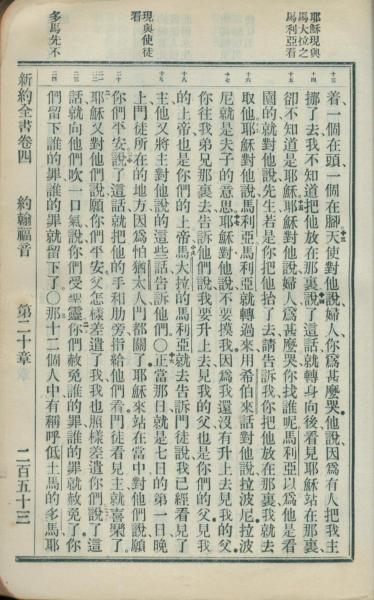 耶穌現與
馬大拉之
馬利亞看
現與使徒
看
多馬先不
十三
十四
十五
十六
十七
十八
十九
二十
二一
二二
二三
二四
着一個在頭一個在腳天使對他說婦人你為甚麼哭他說因為有人把我主
挪了去我不知道把他放在那裏說了這話就轉身向後看見耶穌站在那裏
卻不知道是耶穌耶穌對他說婦人為甚麼哭你找誰呢馬利亞以為他是看
園的就對他說先生若是你把他抬了去請告訴我你把他放在那裏我就去
取他耶穌對他說馬利亞馬利亞就轉過來用希伯來話對他說拉波尼拉波
尼就是夫子的意思耶穌對他說不要摸我因為我還沒有升上去見我的父
你往我弟兄那裏去告訴他們說我要升上去見我的父也是你們的父見我
的上帝也是你們的上帝馬大拉的馬利亞就去告訴門徒說我已經看見了
主他又將主對他說的這些話告訴他們〇正當那日就是七日的第一日晚
上門徒所在的地方因為怕猶太人門都關了耶穌來站在當中對他們說願
你們平安說了這話就把他的手和肋旁指給他們看門徒看見主就喜樂了
耶穌又對他們說願你們平安父怎樣差遣了我我也照樣差遣你們說了這
話就向他們吹一口氣說你們受聖靈你們赦免誰的罪誰的罪就赦免了你
們留下誰的罪誰的罪就留下了〇那十二個人中有稱呼低土馬的多馬耶
新約全書卷四 約翰福音 第二十章 二百五十三